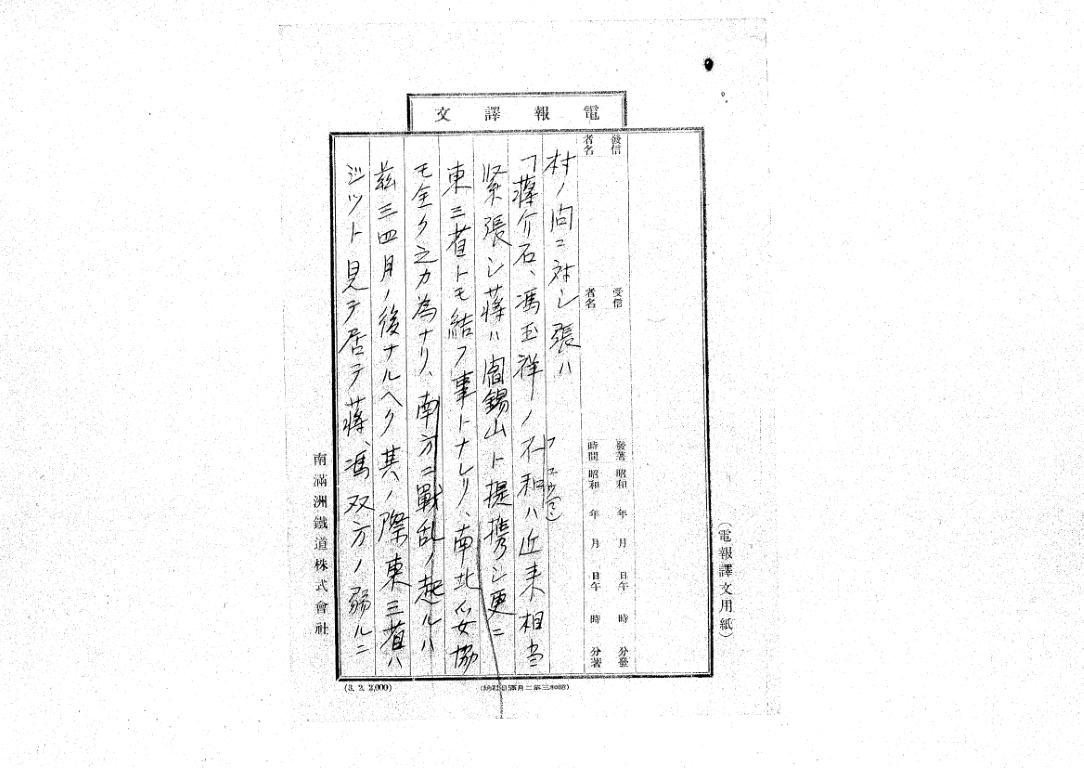 電報譯文
發信者名
受信者名
發著時間 昭和 年 月 日午 時 分發
昭和 年 月 日午 時 分著
村ノ問ニ対シ張ハ
「蒋介石、馮玉祥ノ不和ハ近来相当
緊張シ蒋ハ閻錫山ト提携シ更ニ
東三省トモ結フ事トナレリ、南北妥協
モ全ク之カ為ナリ、南方ニ戰乱ノ起ルハ
茲三四月ノ後ナルヘク其ノ際東三省ハ
ジツト見テ居テ蒋、馮双方ノ弱ルニ
南滿洲鐵道株式會社
(電報譯文用紙)
(3. 2. 2,000)